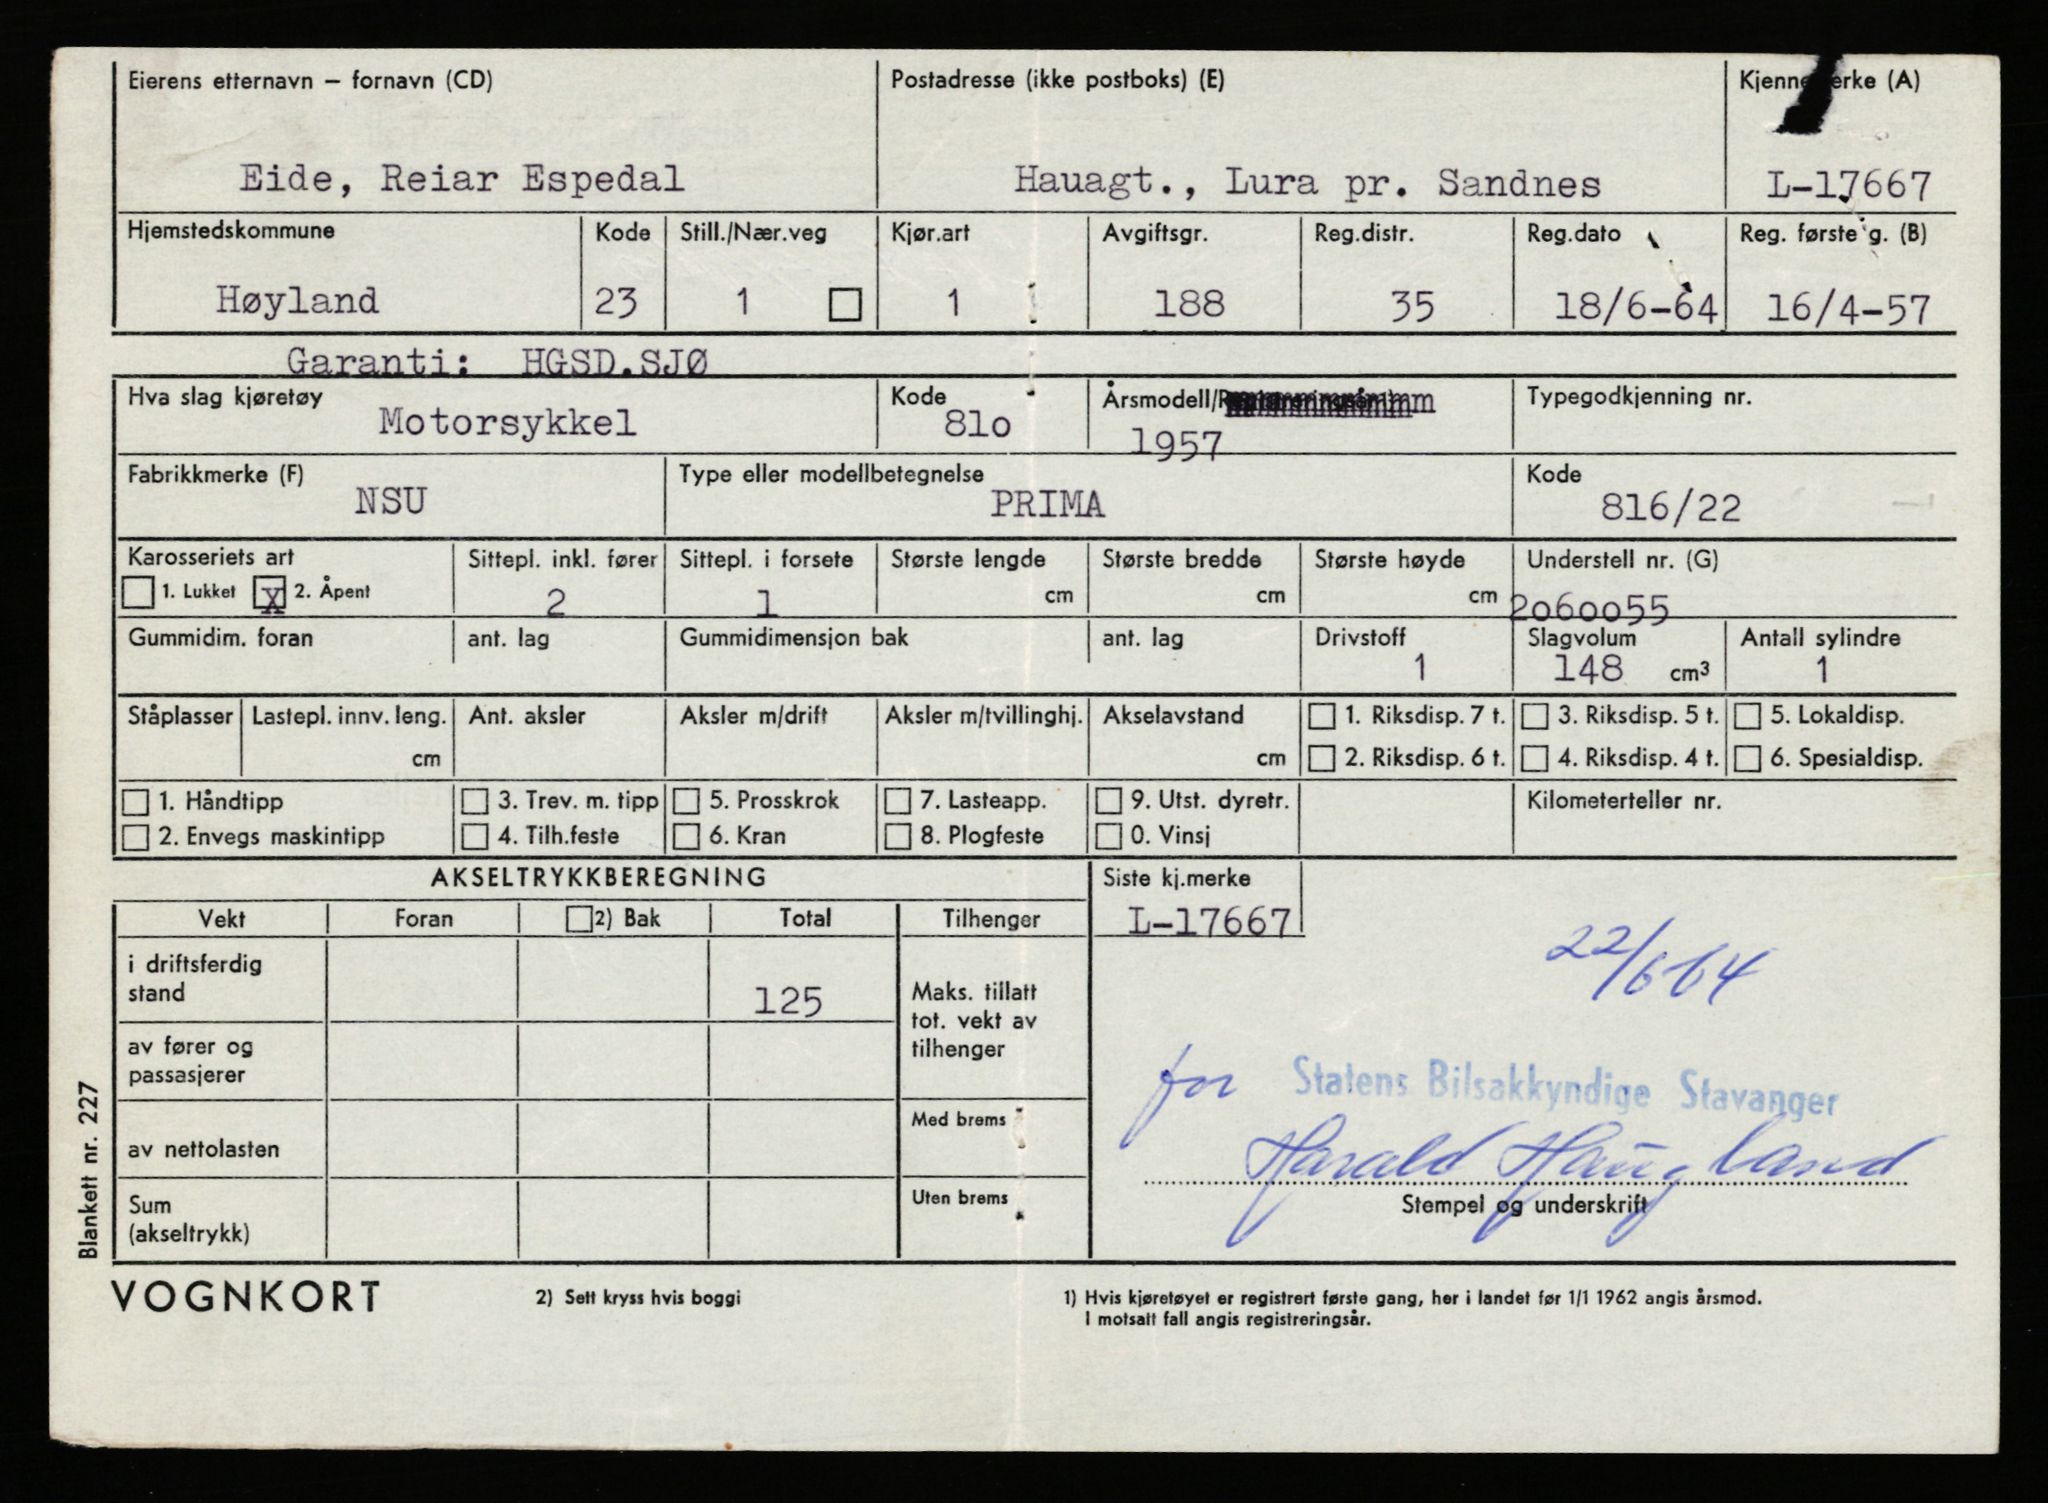 Eierens etternavn – fornavn (CD) Postadresse (ikke postboks) (E) Kjenne erke (A)
Eide, Reiar Espedal Hauagt., Lura pr. Sandnes L-17667
Hjemstedskommune Kode Still./Nær.veg Kjør.art Avgiftsgr. Reg.distr. Reg.dato Reg. første g. (B)
Høyland 23 1 1 188 35 18/6-64 16/4-57
Garanti: HGSD.SJØ
Hva slag kjøretøy Kode Årsmodell/ Typegodkjenning nr.
Motorsykkel 81o 1957
Fabrikkmerke (F) Type eller modellbetegnelse Kode
NSU PRIMA 816/22
Karosseriets art Sittepl. inkl. fører Sittepl. i forsete Største lengde Største bredde Største høyde Understell nr. (G)
1. Lukket X 2. Åpent 2 1 cm cm cm 2o6oo55
Gummidim. foran ant. lag Gummidimensjon bak ant. lag Drivstoff Slagvolum Antall sylindre
1 148 cm³ 1
Ståplasser Lastepl. innv. leng. Ant. aksler Aksler m/drift Aksler m/tvillinghj. Akselavstand 1. Riksdisp. 7 t. 3. Riksdisp. 5 t. 5. Lokaldisp.
cm cm 2. Riksdisp. 6 t. 4. Riksdisp. 4 t. 6. Spesialdisp.
1. Håndtipp 3. Trev. m. tipp 5. Prosskrok 7. Lasteapp. 9. Utst. dyretr. Kilometerteller nr.
2. Envegs maskintipp 4. Tilh.feste 6. Kran 8. Plogfeste 0. Vinsj
AKSELTRYKKBEREGNING Siste kj.merke
Vekt Foran 2) Bak Total Tilhenger L-17667
22/6 64
i driftsferdig
stand 125 Maks. tillatt
tot. vekt av
tilhenger
av fører og
passasjerer
for Statens Bilsakkyndige Stavanger
Med brems
av nettolasten
Harald Haugland
Uten brems Stempel og underskrift
Sum
(akseltrykk)
Blankett nr. 227
VOGNKORT 2) Sett kryss hvis boggi 1) Hvis kjøretøyet er registrert første gang, her i landet før 1/1 1962 angis årsmod.
I motsatt fall angis registreringsår.